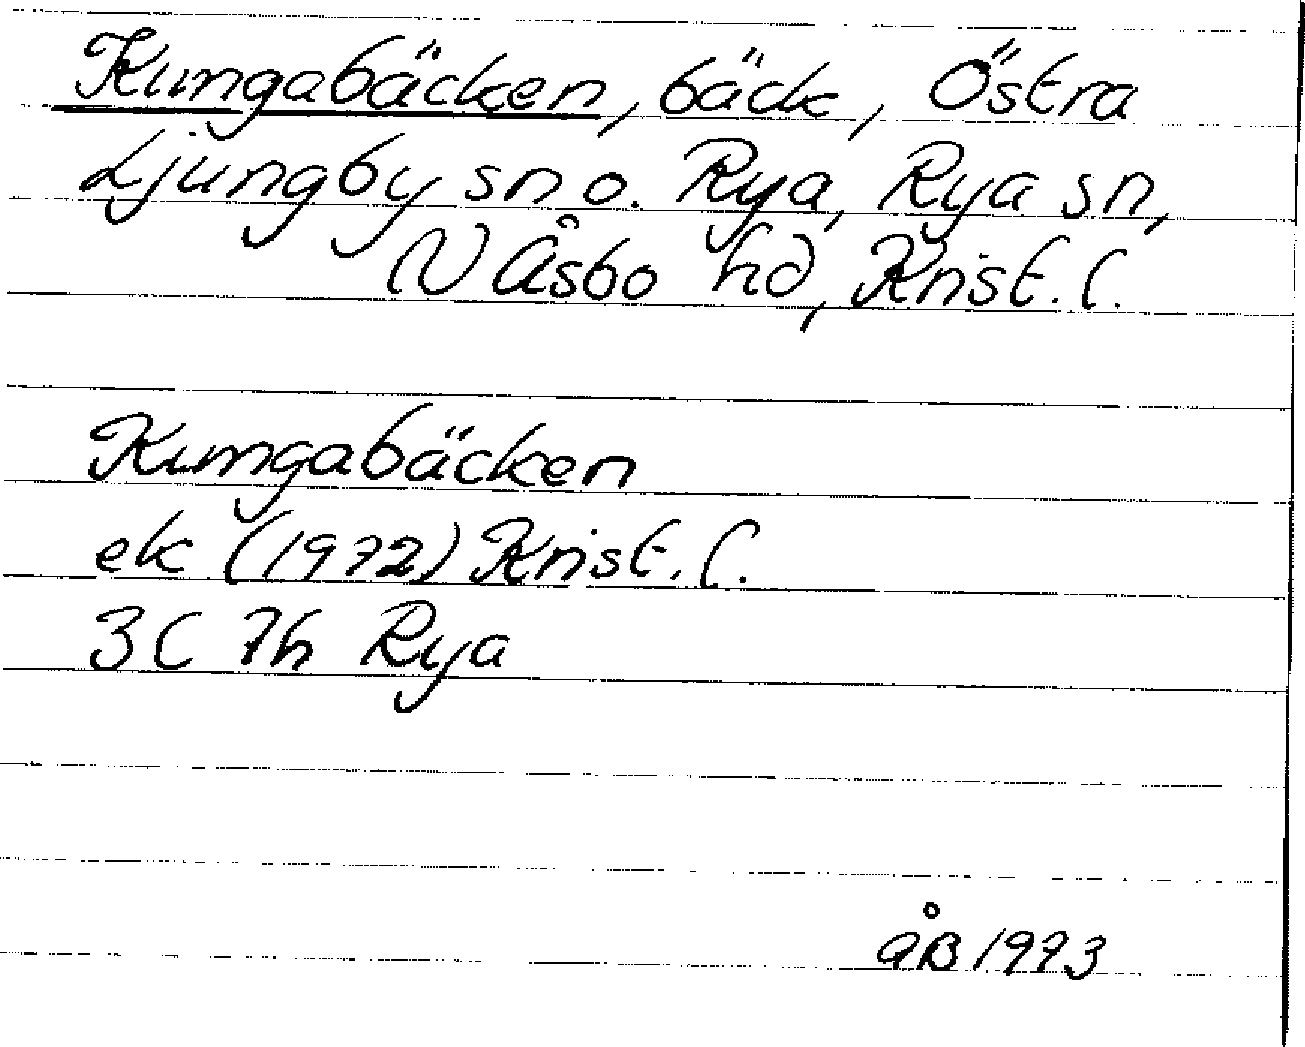 Kungabäcken, bäck, Östra
Ljungby sn o. Rya, Rya sn,
N Åsbo hd, Krist. l.
Kungabäcken
ek (1972) Krist. l.
3C 7h Rya
åB 1993